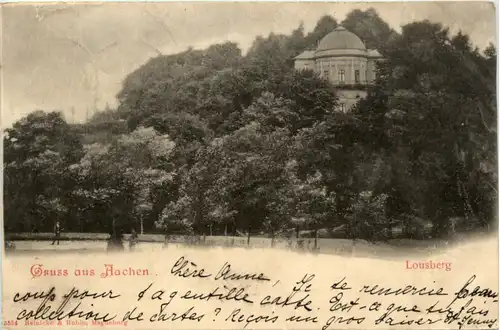 Gruss aus Aachen.
Lousberg
Chère Anne, Je te remercie beau-
coup pour ta gentille carte. Est-ce que tu fais
collection de cartes? Reçois un gros baiser de
Jenny
5554 Reinicke & Rubin, Magdeburg